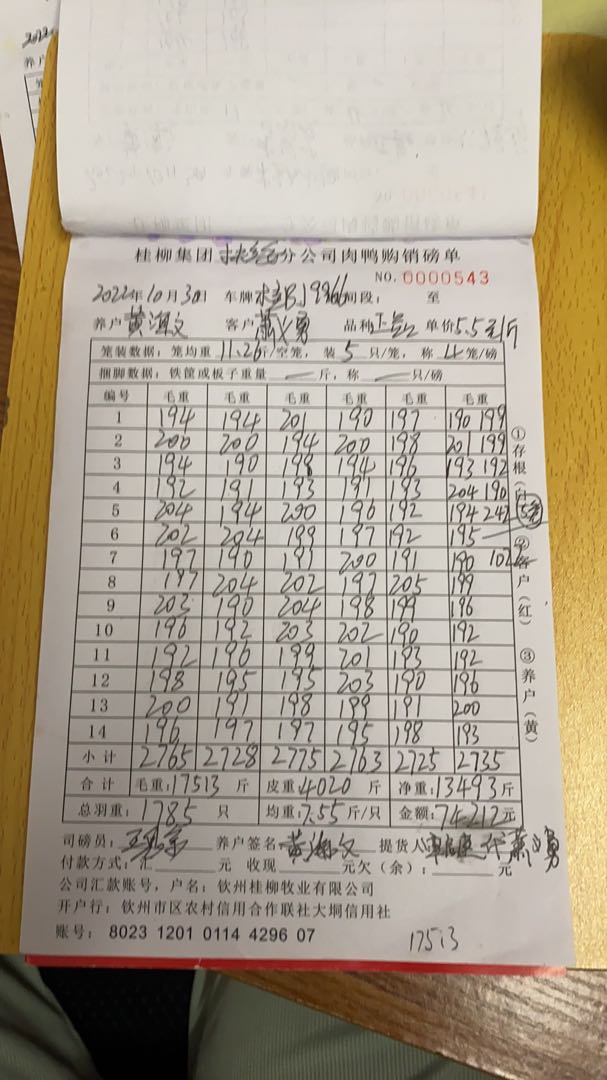 桂柳集团 分公司肉鸭购销磅单
NO. 0000543
2022年10月30日 车牌 19966 间段： 至
养户 黄海文 客户 萧义勇 品种 单价 5.5元/斤
笼装数据：笼均重 11.26斤/空笼，装 5 只/笼，称 4 笼/磅
捆脚数据：铁筐或板子重量 — 斤，称 — 只/磅
编号 毛重 毛重 毛重 毛重 毛重 毛重
1 194 194 201 190 197 190 199
2 200 200 194 200 198 201 199
3 194 190 198 194 196 193 192
4 192 191 193 191 193 204 190
5 204 194 200 196 192 194 243
6 202 204 199 197 192 195
7 197 190 191 200 191 190
8 197 204 202 197 205 199
9 203 190 204 198 199 196
10 196 192 203 202 190 192
11 192 196 199 201 193 192
12 198 195 195 203 190 196
13 200 191 198 199 191 200
14 196 197 197 195 198 193
小计 2765 2728 2775 2763 2725 2735
合计 毛重：17513 斤 皮重：4020 斤 净重：13493 斤
总羽重：1785 只 均重：7.55 斤/只 金额：74212 元
司磅员： 养户签名 黄海文 提货人 萧义勇
付款方式：汇 元 收现 元欠（余）： 元
公司汇款账号，户名：钦州桂柳牧业有限公司
开户行：钦州市区农村信用合作联社大垌信用社
账号：8023 1201 0114 4296 07
17513
①存根（白）
②客户（红）
③养户（黄）